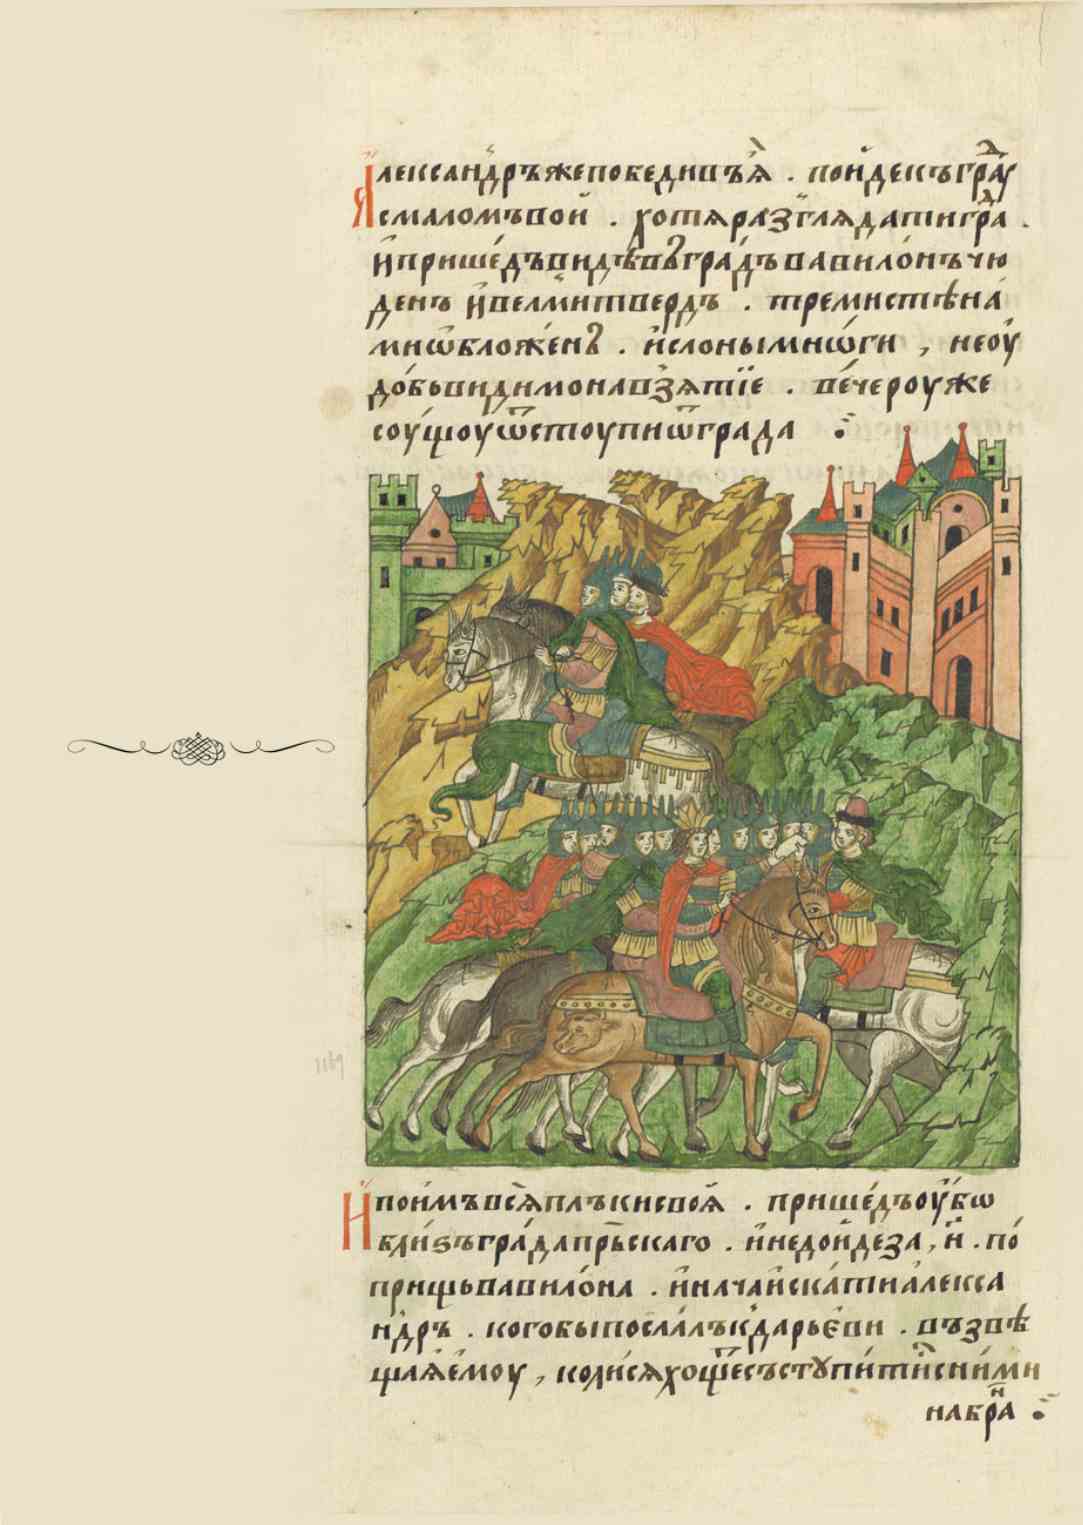 Александръжепобедивъꙗ҆ . пойдекъграⷣу
смаломъвои . хотяразглядатиграⷣ .
ипришедъвидѣвъградъвавилонъчю
денъ ивелмитвердъ . тремистѣна
миѡбложенъ . ислонымнѡги , неоу
добьвидимонавзятїе . вечероуже
соущоуѿстоупиѿграда :
Ипоимъвсяплъкисвоя . пришедъоубѡ
близъградапрьскаго . инедоидеза , и҃ . по
прищьвавилона . иначаискатиалекса
ндръ . когобыпослалъкдарьеви . възвѣ
щаяемоу , колисяхощесъступитиснⷨими
набраⷩ :
1169